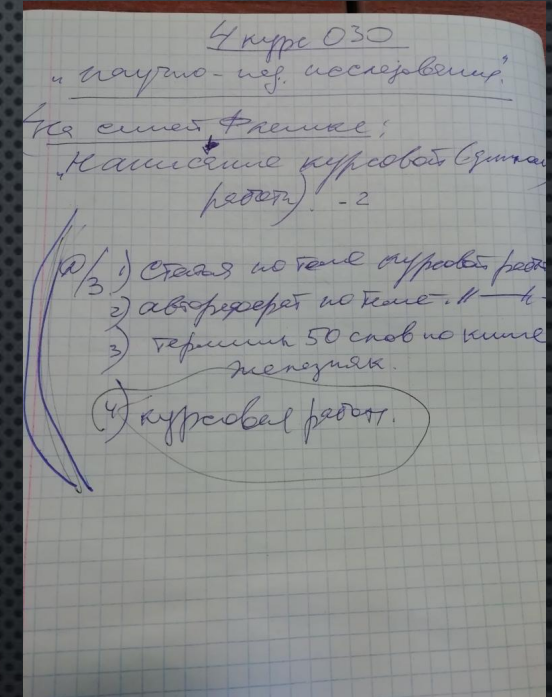 4 курс ОЗО
"научно-пед. исследования".
На синей флешке:
"Написание курсовой (дипломн
работы) - 2
Д/З 1) статья по теме курсовой работ
2) автореферат по теме. –"–
3) термины 50 слов по книге
Железняк.
4) курсовая работ.